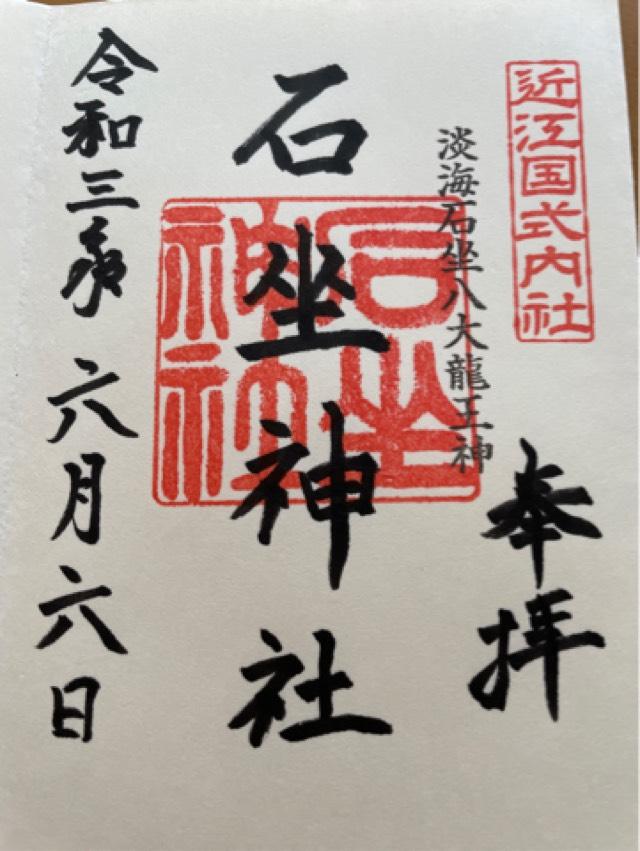 近江国式内社
奉拝
淡海石坐八大龍王神
石坐神社
石坐神社
令和三年 六月六日